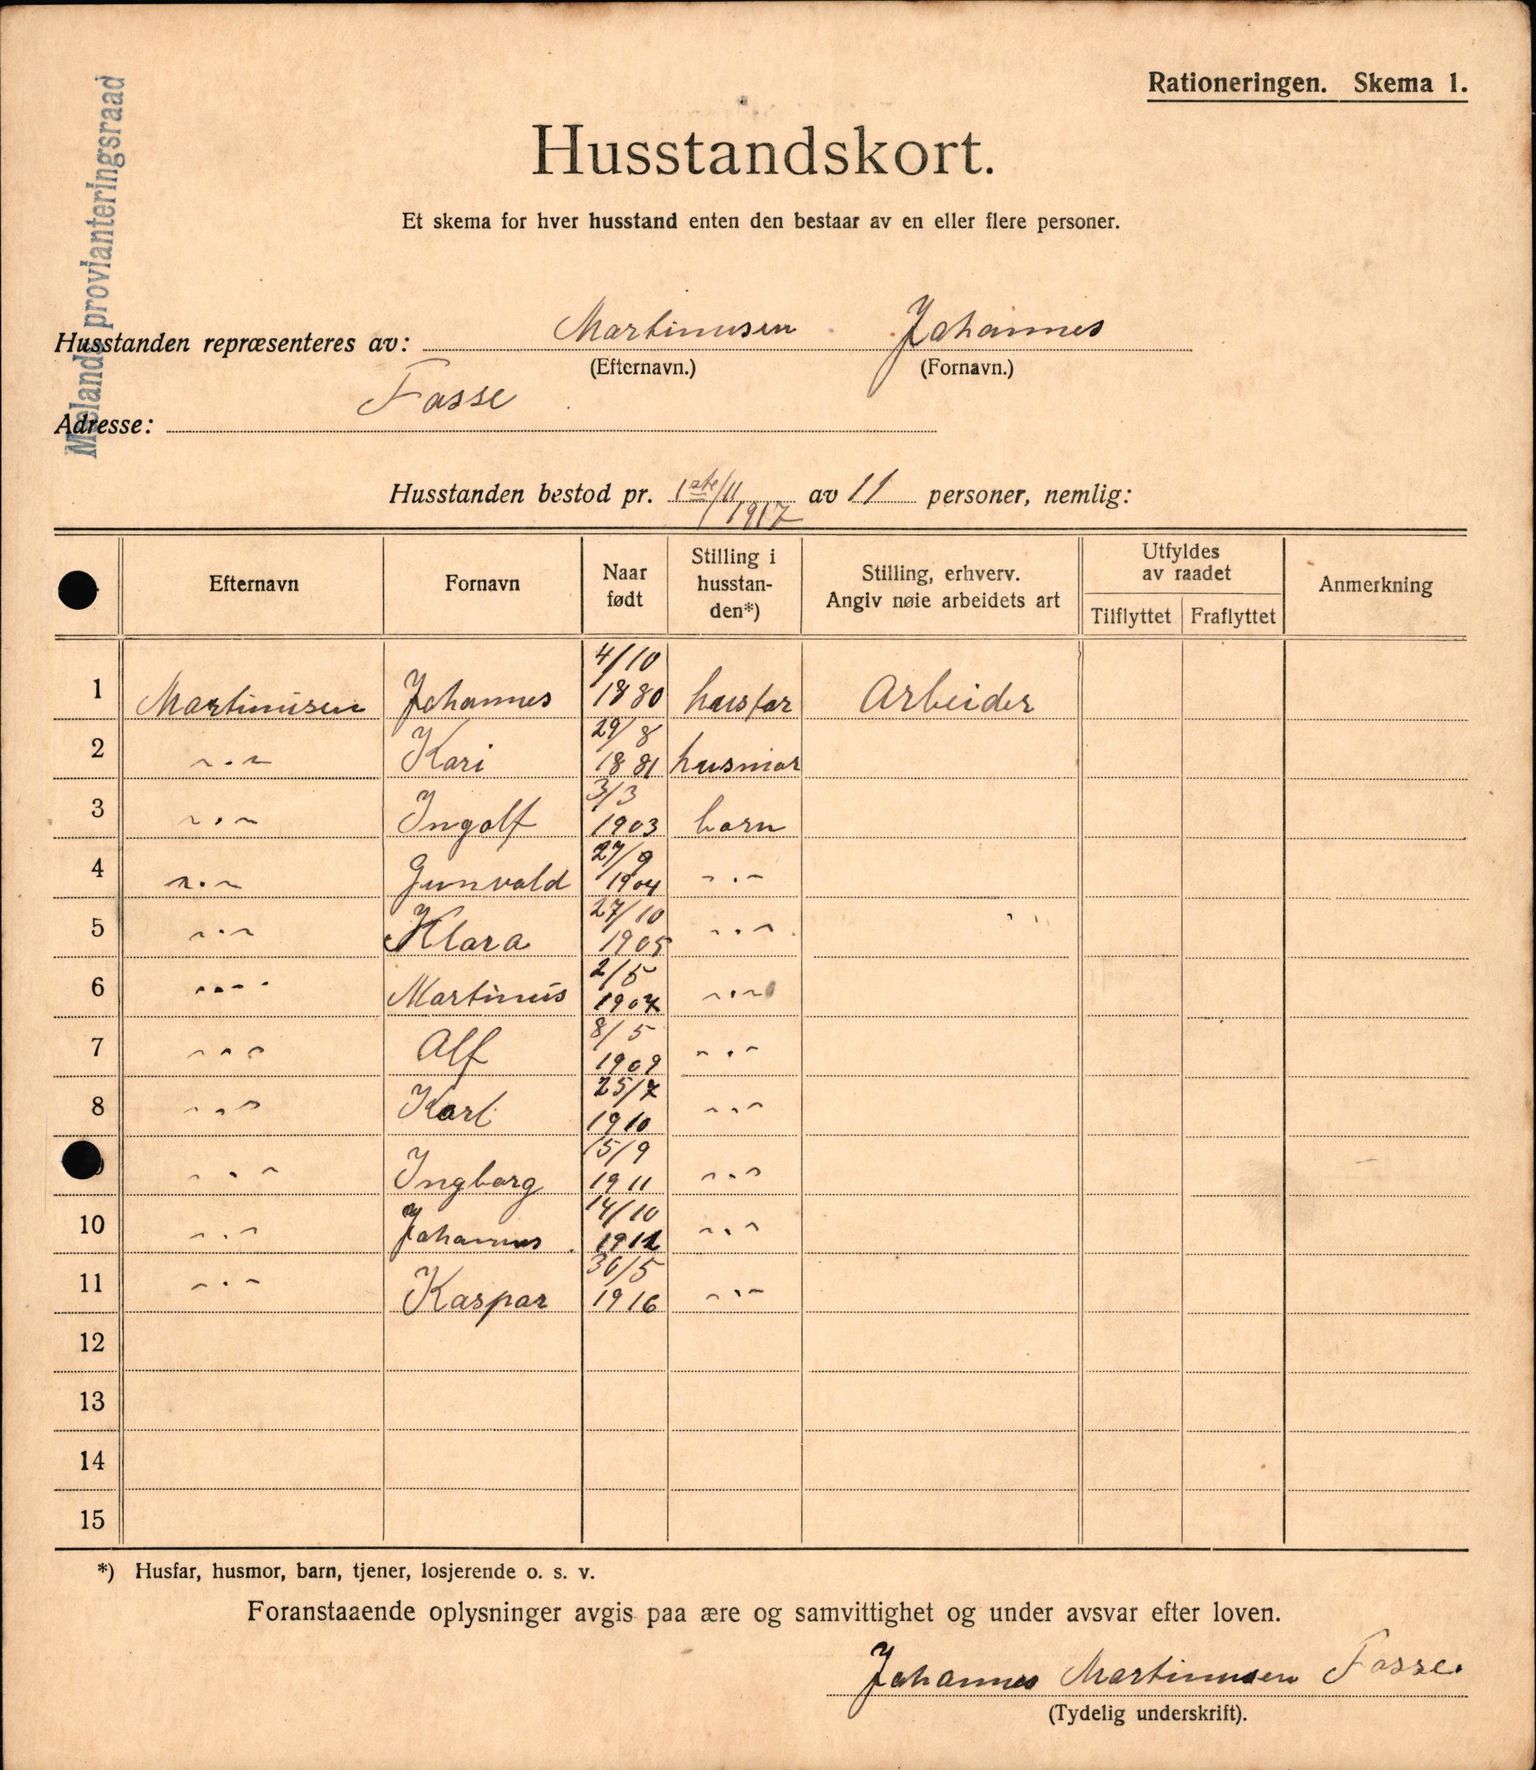 Rationeringen. Skema 1.
Mælands provianteringsraad
Husstandskort.
Et skema for hver husstand enten den bestaar av en eller flere personer.
Husstanden repræsenteres av: Martinusen Johannes
(Efternavn.) (Fornavn.)
Adresse: Fosse
Husstanden bestod pr. 1ste/11 1917 av 11 personer, nemlig:
Efternavn Fornavn Naar født Stilling i husstan-den*) Stilling, erhverv. Angiv nøie arbeidets art Utfyldes av raadet Tilflyttet Fraflyttet Anmerkning
1 Martinusen Johannes 4/10 1880 husfar Arbeider
2 ~.~ Kari 29/8 1881 husmor
3 ~.~ Ingolf 3/3 1903 barn
4 ~.~ Gunvald 27/9 1904 ~.~
5 ~.~ Klara 27/10 1905 ~.~
6 ~.~ Martinus 2/5 1907 ~.~
7 ~.~ Alf 8/5 1909 ~.~
8 ~.~ Karl 25/7 1910 ~.~
9 ~.~ Ingborg 15/9 1911 ~.~
10 ~.~ Johannes 14/10 1912 ~.~
11 ~.~ Kaspar 30/5 1916 ~.~
12
13
14
15
*) Husfar, husmor, barn, tjener, losjerende o. s. v.
Foranstaaende oplysninger avgis paa ære og samvittighet og under avsvar efter loven.
Johannes Martinusen Fosse.
(Tydelig underskrift).